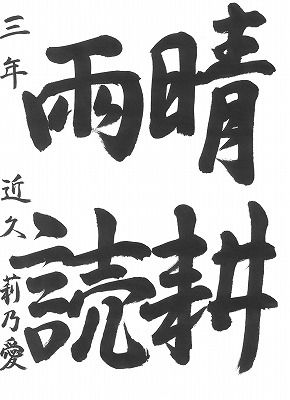 晴耕
雨読
三年 近久 莉乃愛